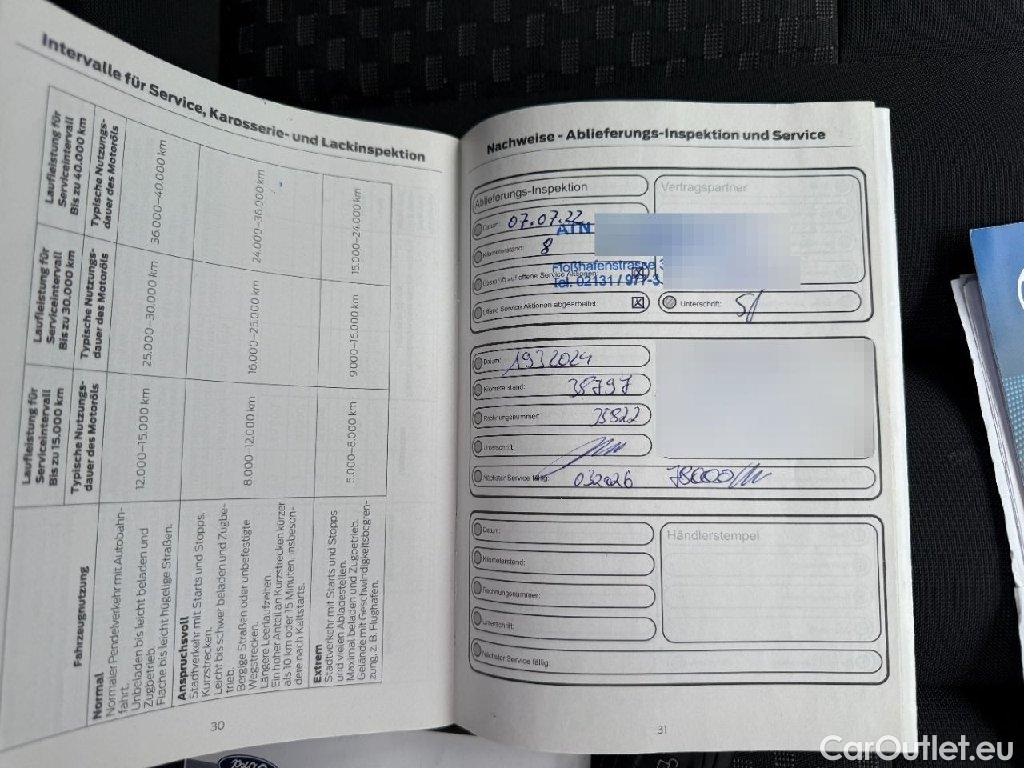 Intervalle für Service, Karosserie- und Lackinspektion
Fahrzeugnutzung
Laufleistung für
Serviceintervall
Bis zu 15.000 km
Laufleistung für
Serviceintervall
Bis zu 30.000 km
Laufleistung für
Serviceintervall
Bis zu 40.000 km
Typische Nutzungs-
dauer des Motoröls
Typische Nutzungs-
dauer des Motoröls
Typische Nutzungs-
dauer des Motoröls
Normal
Normaler Pendelverkehr mit Autobahn-
fahrt.
Unbeladen bis leicht beladen und
Zugbetrieb.
Flache bis leicht hügelige Straßen.
12.000–15.000 km
25.000–30.000 km
36.000–40.000 km
Anspruchsvoll
Stadtverkehr mit Starts und Stopps,
Kurzstrecken.
Leicht bis schwer beladen und Zugbe-
trieb.
Bergige Straßen oder unbefestigte
Wegstrecken.
Längere Leerlaufzeiten.
Ein hoher Anteil an Kurzstrecken kürzer
als 10 km oder 15 Minuten, insbeson-
dere nach Kaltstarts.
8.000–12.000 km
16.000–25.000 km
24.000–36.000 km
Extrem
Stadtverkehr mit Starts und Stopps
und vielen Abladestellen.
Maximal beladen und Zugbetrieb.
Gelände mit Geschwindigkeitsbegren-
zung, z. B. Flughafen.
5.000–8.000 km
9.000–15.000 km
15.000–24.000 km
30
Nachweise - Ablieferungs-Inspektion und Service
Ablieferungs-Inspektion
Vertragspartner
Datum: 07.07.22
ATN
Kilometerstand: 8
Floßhafenstrasse 3
Tel. 02131 / 977-3
Unterschrift:
Datum: 19.3.2024
Kilometerstand: 38797
Rechnungsnummer:
Unterschrift:
Nächster Service fällig: 032026 78000
Datum:
Händlerstempel
Kilometerstand:
Rechnungsnummer:
Unterschrift:
Nächster Service fällig:
31
Ford
CarOutlet.eu